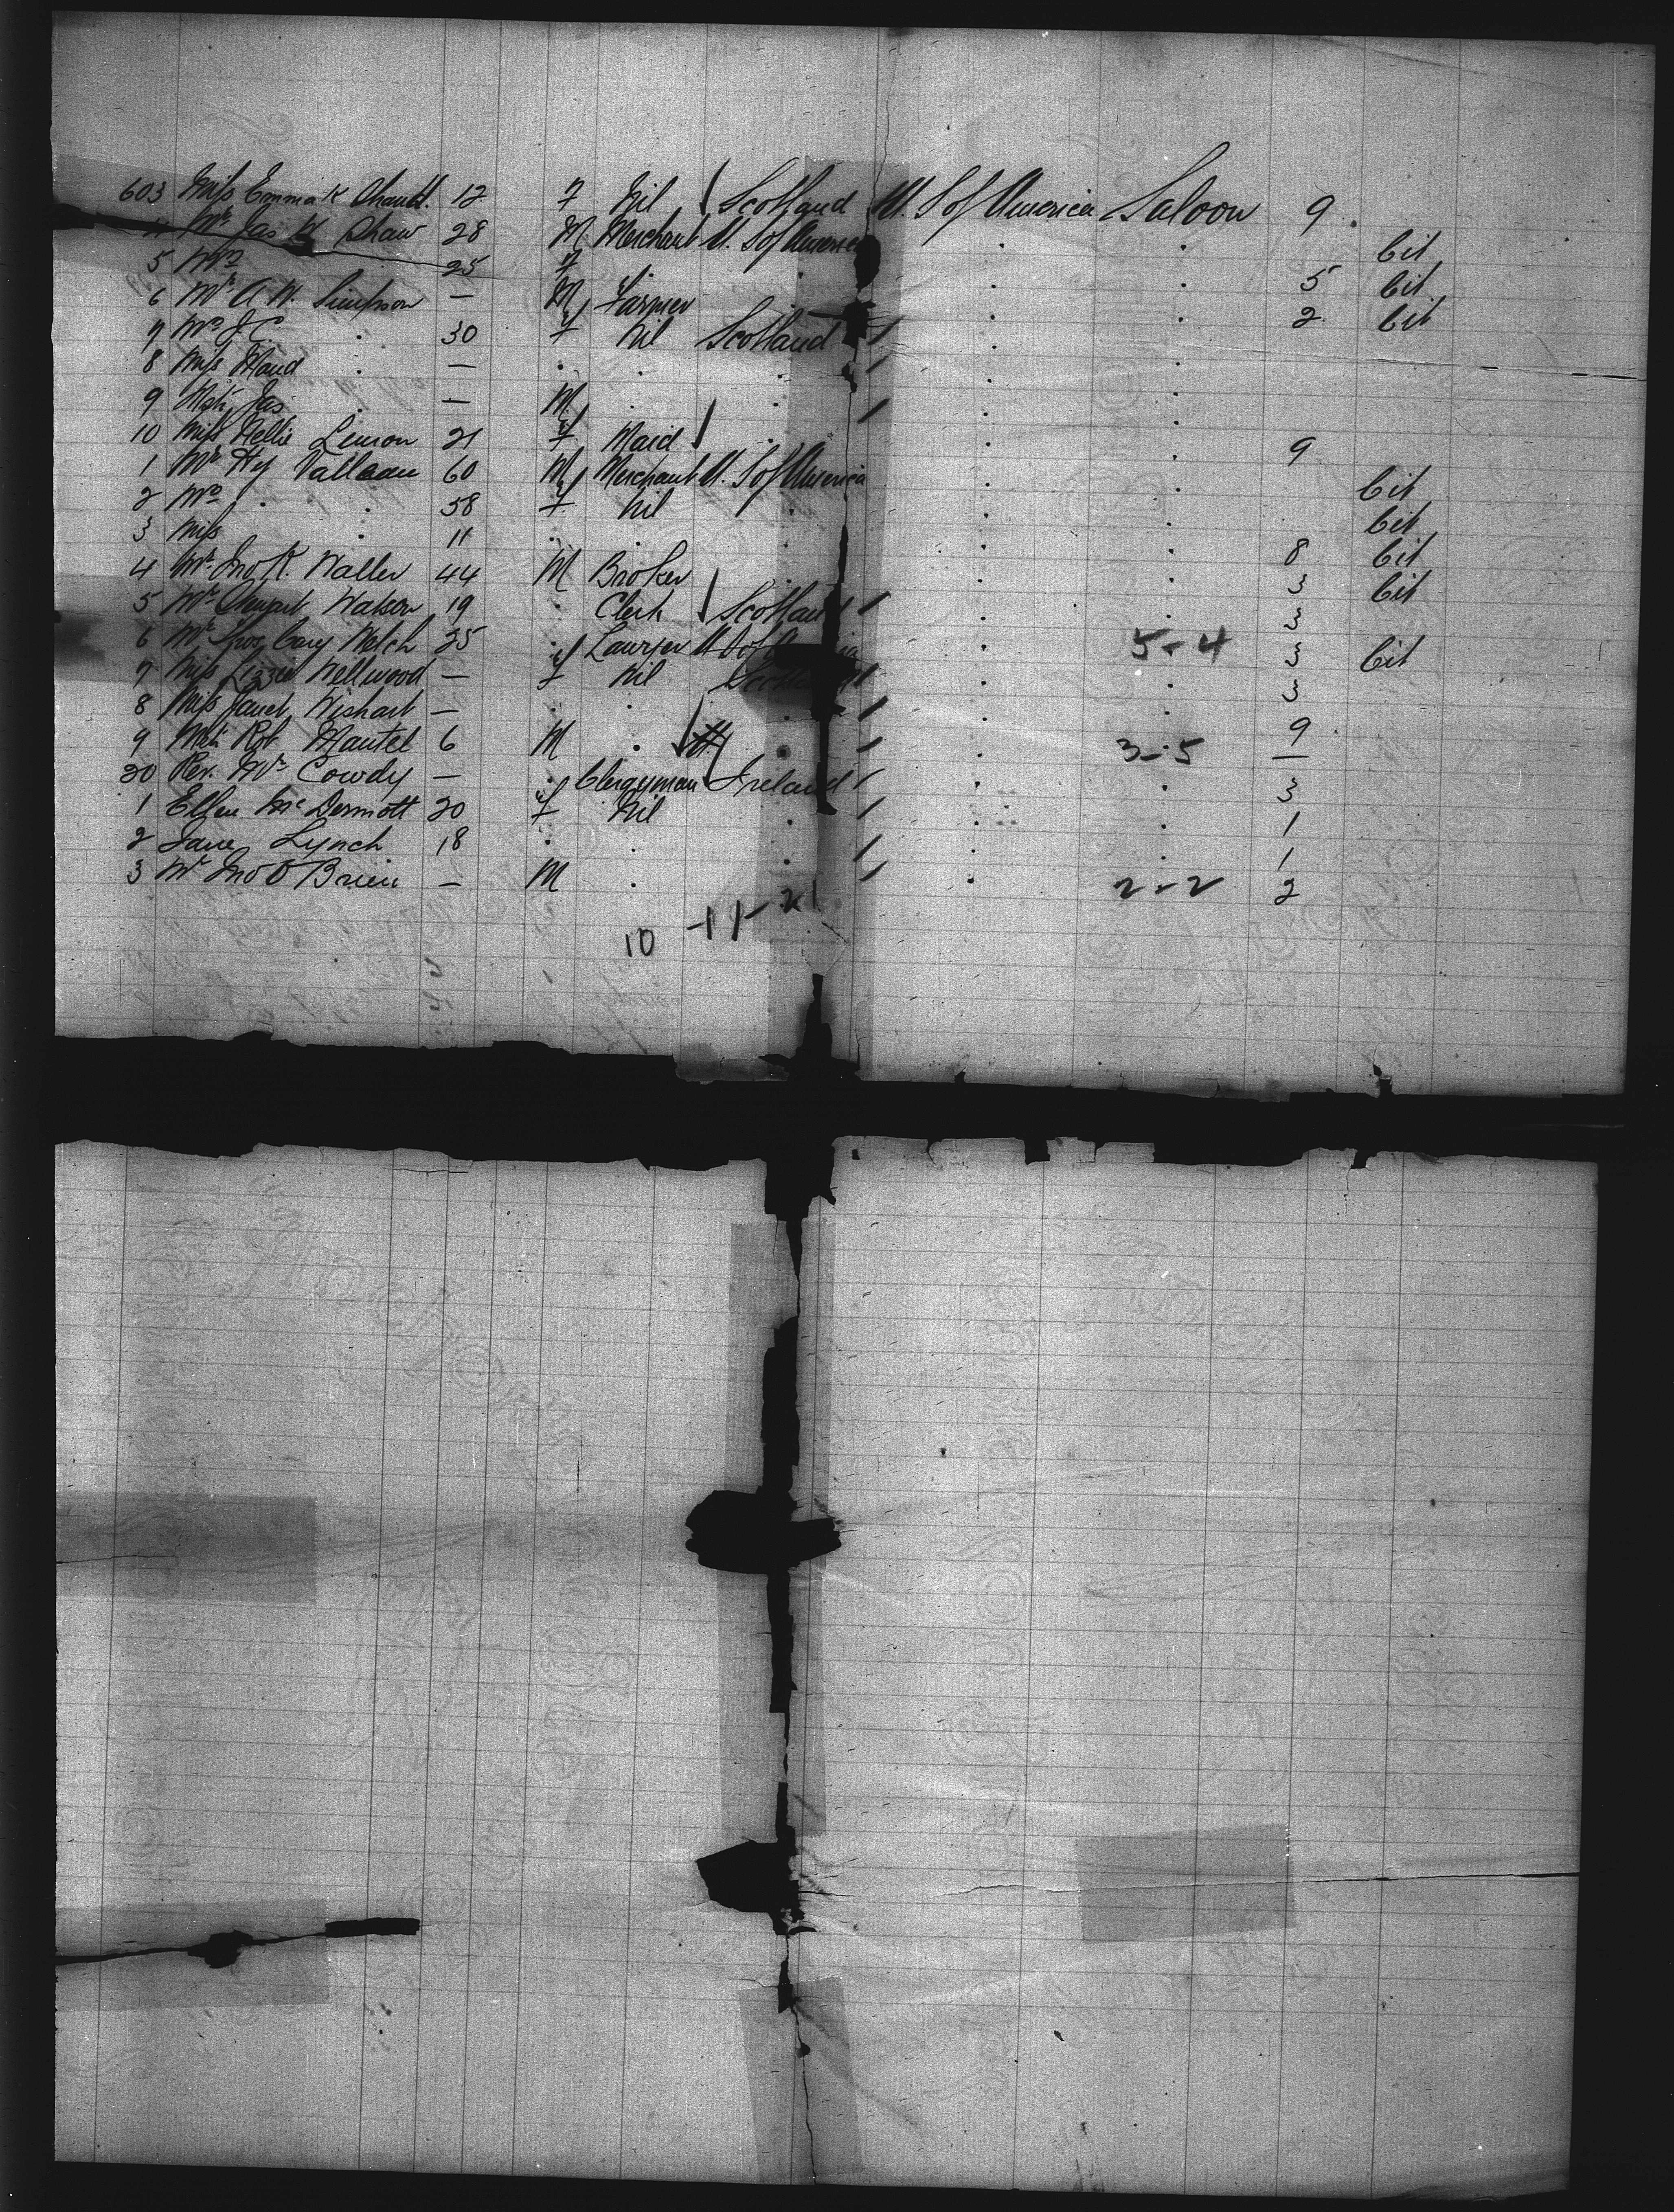 603 Miss Emma K 12 F Nil Scotland U. S of America Saloon 9
4 Mr Jas W Shaw 28 M Merchant U. S of America " " Cit
5 Mrs 25 F " " 5 Cit
6 Mr A. W. Simpson — M Farmer " " 2 Cit
7 Mrs J. C. " 30 F Nil Scotland " "
8 Miss Maud " — " " " " "
9 Mstr Jas " — M " " " "
10 Miss Nellie Lemon 21 F Maid " " " 9
1 Mr Hy Valleau 60 M Merchant U. S of America " " Cit
2 Mrs " " 58 F Nil " " " Cit
3 Miss " 11 " " " " " 8 Cit
4 Mr Jno K. Waller 44 M Broker " " " 3 Cit
5 Mr Watson 19 " Clerk Scotland " " 3
6 Mr Thos Cary Welch 25 " Lawyer U S of America " 5-4 3 Cit
7 Miss Lizzie Wellwood — F Nil Scotland " " 3
8 Miss Janet Wishart — " " " " " 9
9 Mstr Rob Mantel 6 M " " " 3-5 —
20 Rev. Mr Cowdy — " Clergyman Ireland " " 3
1 Ellen McDermott 20 F Nil " " " 1
2 Jane Lynch 18 " " " " " 1
3 Mr Jno O Brien — M " " 2-2 2
10 -11- 21